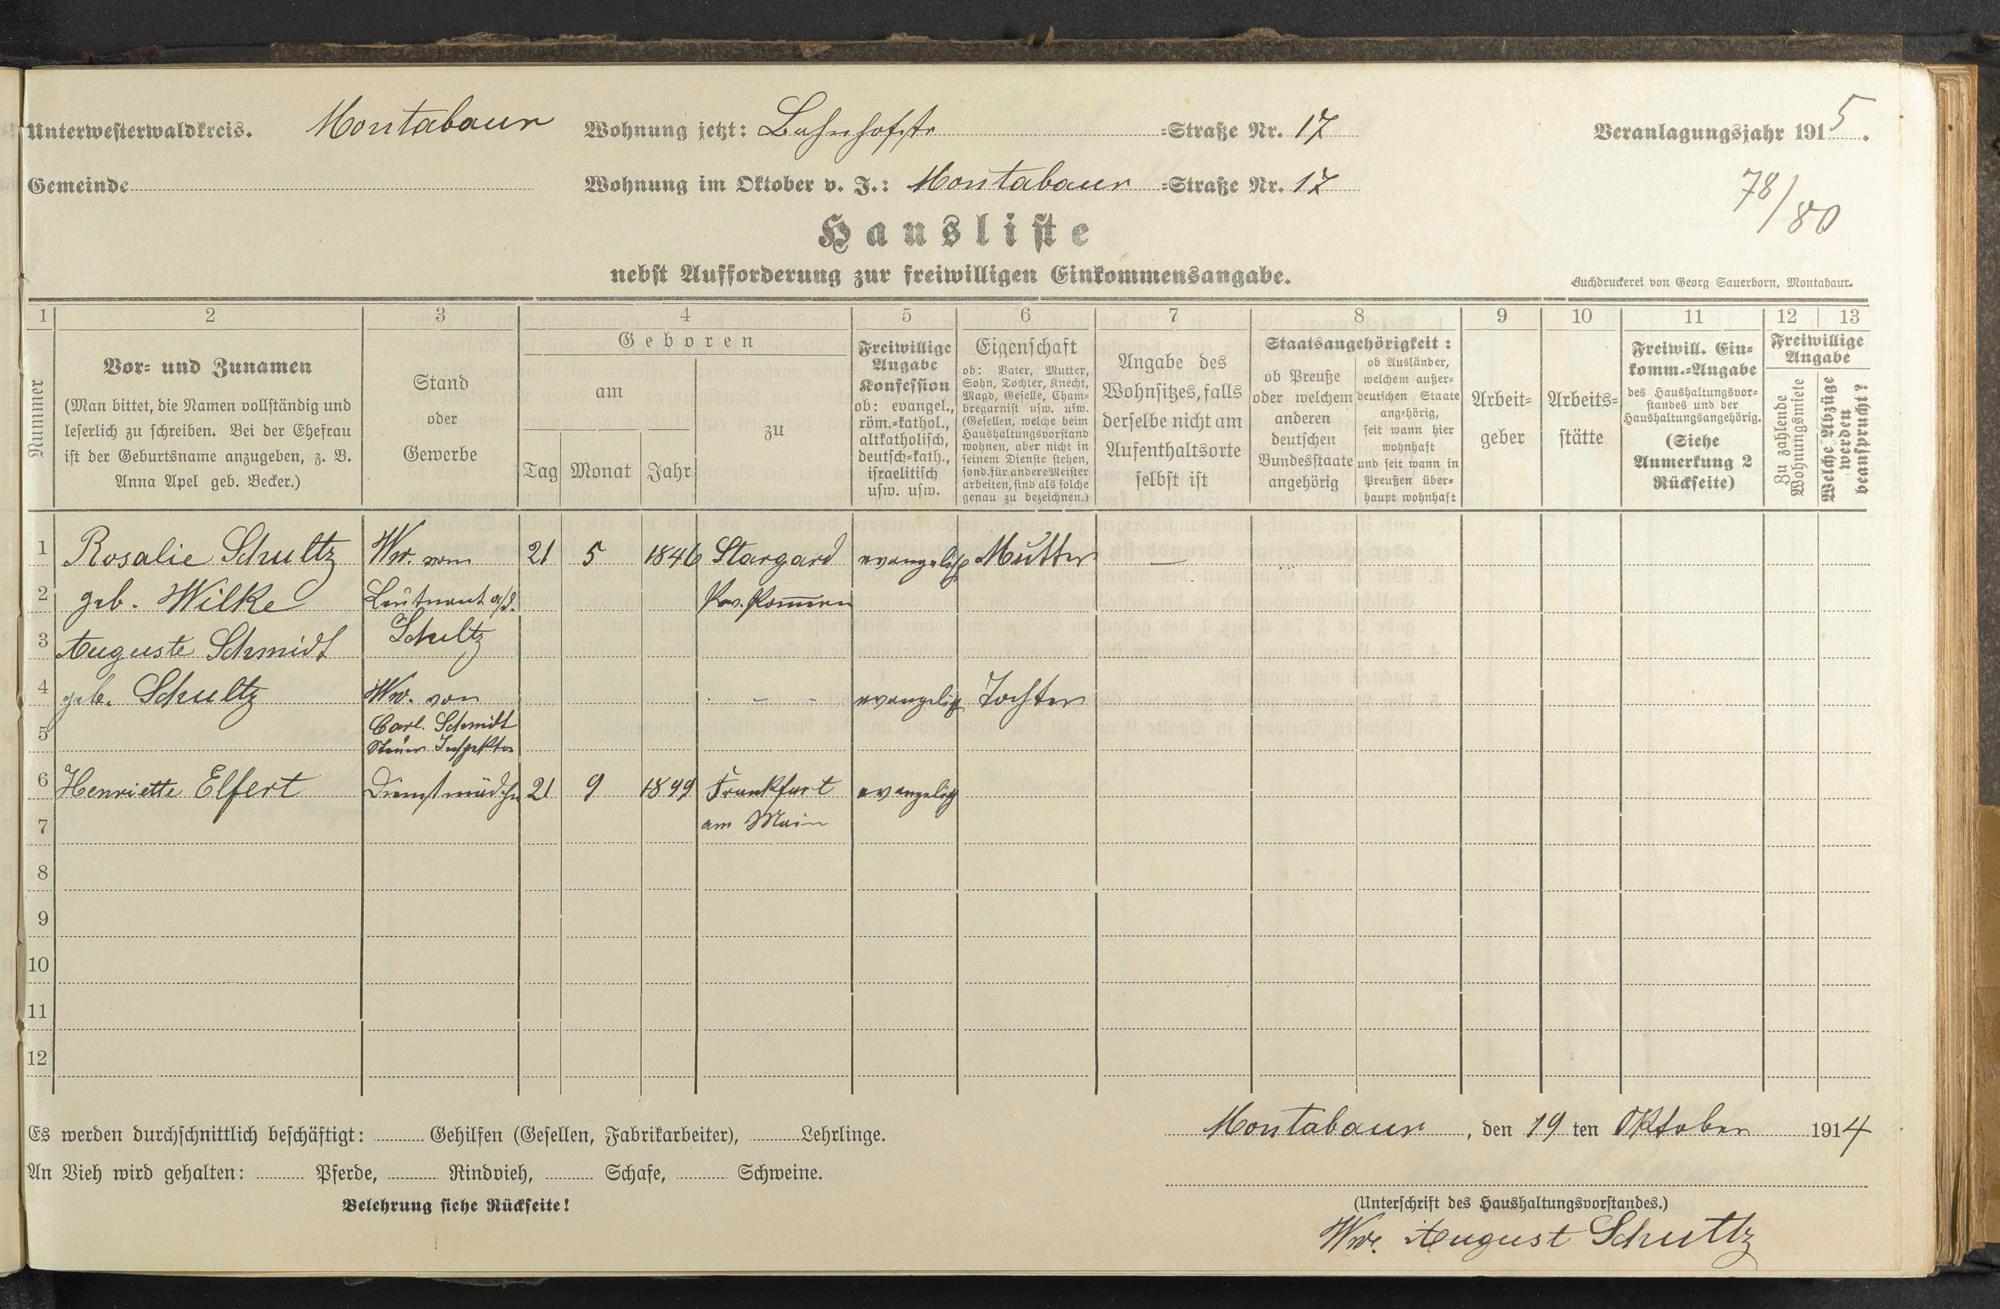 Unterwesterwaldkreis. Montabaur Wohnung jetzt: Bahnhofstr -Straße Nr. 17 Veranlagungsjahr 1915.
Gemeinde Wohnung im Oktober v. J.: Montabaur -Straße Nr. 17
78/80
Hausliste
nebst Aufforderung zur freiwilligen Einkommensangabe.
Buchdruckerei von Georg Sauerborn, Montabaur.
1 2 3 4 5 6 7 8 9 10 11 12 13
Nummer
Vor- und Zunamen
(Man bittet, die Namen vollständig und
leserlich zu schreiben. Bei der Ehefrau
ist der Geburtsname anzugeben, z. B.
Anna Apel geb. Becker.)
Stand
oder
Gewerbe
Geboren
am
zu
Tag Monat Jahr
Freiwillige
Angabe
Konfession
ob: evangel.,
röm.-kathol.,
altkatholisch,
deutsch-kath.,
israelitisch
usw. usw.
Eigenschaft
ob: Vater, Mutter,
Sohn, Tochter, Knecht,
Magd, Geselle, Cham-
bregarnist usw. usw.
(Gesellen, welche beim
Haushaltungsvorstand
wohnen, aber nicht in
seinem Dienste stehen,
sond. für andere Meister
arbeiten, sind als solche
genau zu bezeichnen.)
Angabe des
Wohnsitzes, falls
derselbe nicht am
Aufenthaltsorte
selbst ist
Staatsangehörigkeit:
ob Preuße
oder welchem
anderen
deutschen
Bundesstaate
angehörig
ob Ausländer,
welchem außer-
deutschen Staate
angehörig,
seit wann hier
wohnhaft
und seit wann in
Preußen über-
haupt wohnhaft
Arbeit-
geber
Arbeits-
stätte
Freiwill. Ein-
komm.-Angabe
des Haushaltungsvor-
standes und der
Haushaltungsangehörig.
(Siehe
Anmerkung 2
Rückseite)
Freiwillige
Angabe
Zu zahlende
Wohnungsmiete
Welche Abzüge
werden
beansprucht?
1 Rosalie Schultz Ww. vom 21 5 1846 Stargard evangelisch Mutter —
2 geb. Wilke Leutnant a/d. Prv. Pommern
3 Auguste Schmidt Schultz
4 geb. Schultz Ww. von - - - evangelisch Tochter
5 Carl. Schmidt
Steuer Inspektor
6 Henriette Elfert Dienstmädchen 21 9 1899 Frankfurt evangelisch
7 am Main
8
9
10
11
12
Es werden durchschnittlich beschäftigt: Gehilfen (Gesellen, Fabrikarbeiter), Lehrlinge.
An Vieh wird gehalten: Pferde, Rindvieh, Schafe, Schweine.
Belehrung siehe Rückseite!
Montabaur, den 19 ten Oktober 1914
(Unterschrift des Haushaltungsvorstandes.)
Ww. August Schultz